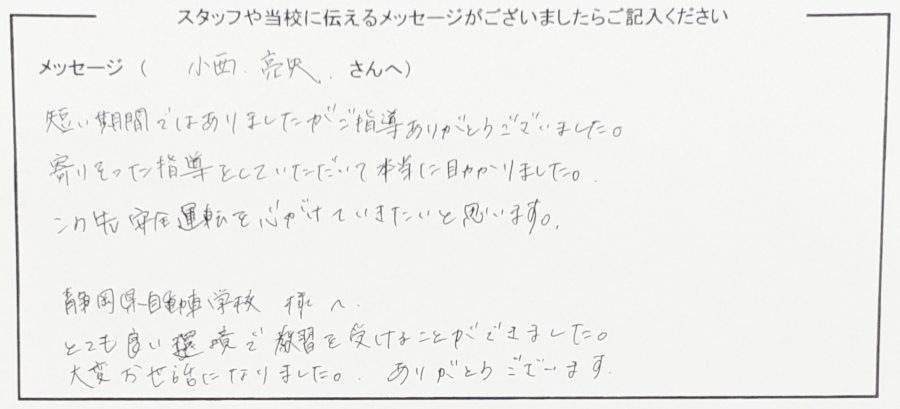 スタッフや当校に伝えるメッセージがございましたらご記入ください
メッセージ ( 小西.亮央. さんへ)
短い期間ではありましたがご指導ありがとうございました。
寄りそった指導をしていただいて本当に助かりました。
この先安全運転を心がけていきたいと思います。
静岡県自動車学校 様へ.
とても良い環境で教習を受けることができました。
大変お世話になりました。ありがとうございます.